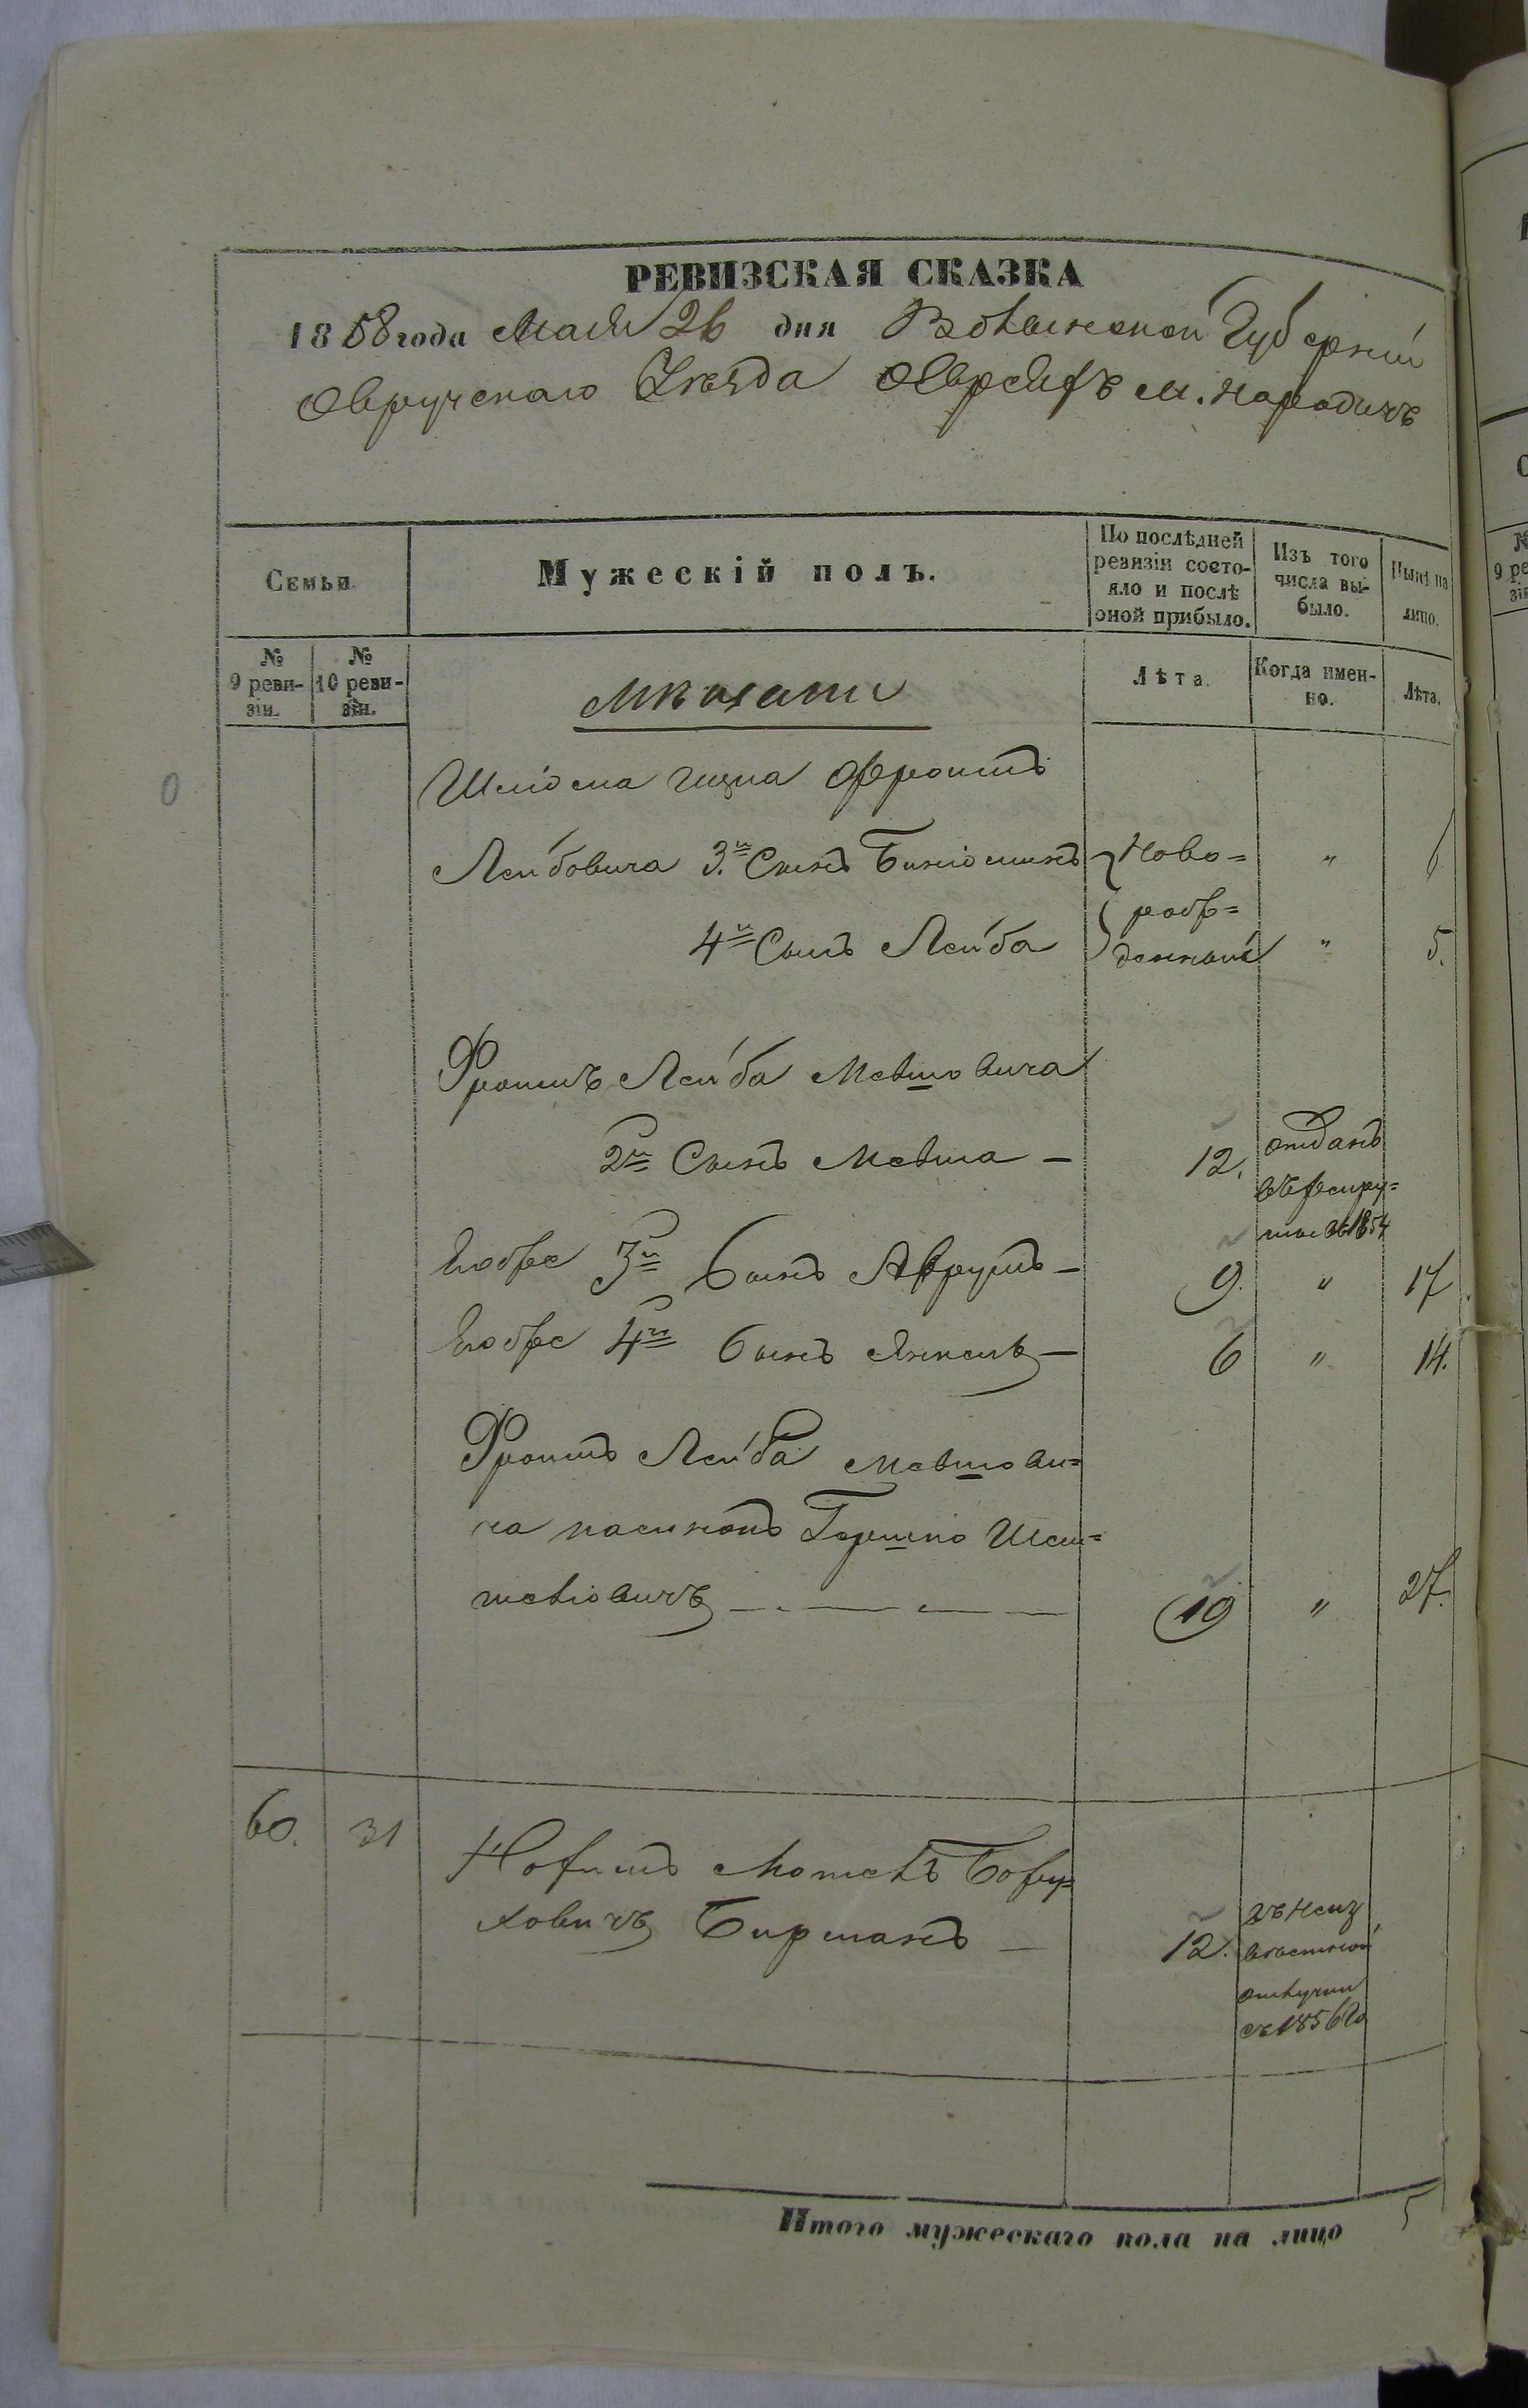 РЕВИЗСКАЯ СКАЗКА
1858 года Мая 26 дня Волынской Губерніи
Овручскаго Уѣзда Евреяхъ м. Народичъ
Семьи
Мужескій полъ.
По послѣдней ревизіи состо-
яло и послѣ оной прибыло.
Изъ того числа вы-
было.
Нынѣ на лицо.
№ 9 реви-
зіи.
№ 10 реви-
зіи.
Мѣщане
Лѣта.
Когда имен-
но.
Лѣта.
Шліома Фроимъ
Лейбовича 3й Сынъ Биніоминъ Ново= " 6
рож=
4й Сынъ Лейба денный " 5.
Фроимъ Лейба Мовшовича
2й Сынъ Мовша — 12. отданъ
въ рекру=
ты въ 1854
Егоже 3й Сынъ Аврумъ — 9. " 17
Егоже 4й Сынъ Янкель — 6 " 14.
Фроимъ Лейба Мовшови=
ча пасинокъ Гершко
19 " 27.
60. 31
Нохимъ Мотель Бору=
ховичъ Бирманъ — 12. въ неиз
вѣстной
отлучки
съ 1856 го
Итого мужескаго пола на лицо 5